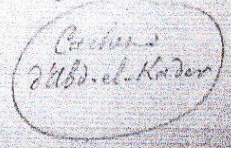 Cachons
d'Abd-el-Kader